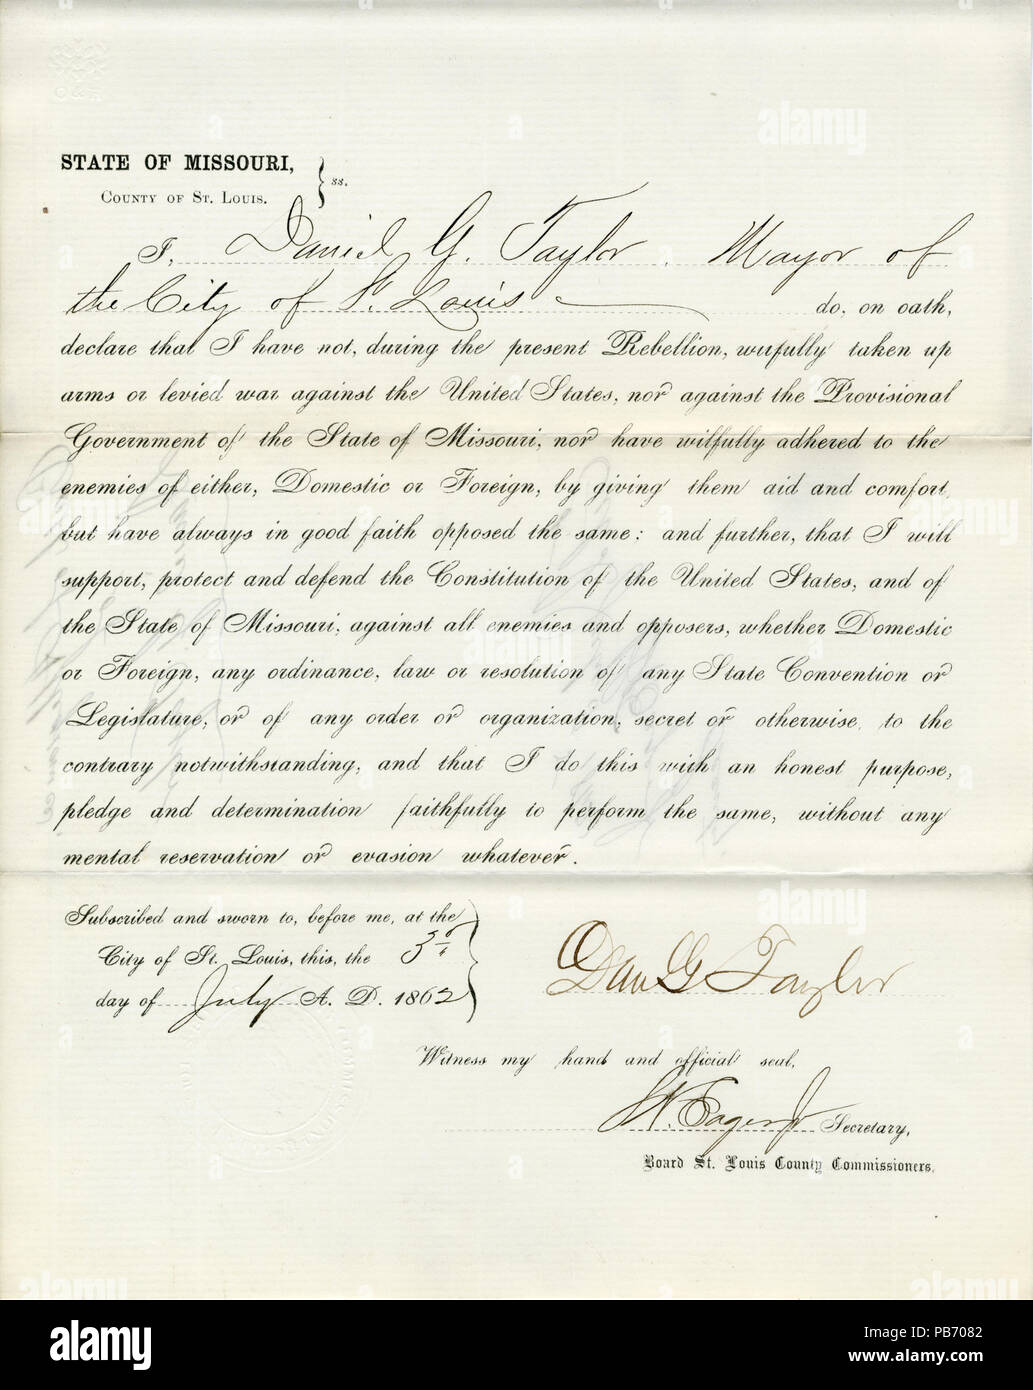 STATE OF MISSOURI,
COUNTY OF ST. LOUIS. } ss.
I, Daniel G. Taylor, Mayor of
the City of St. Louis do, on oath,
declare that I have not, during the present Rebellion, wilfully taken up
arms or levied war against the United States, nor against the Provisional
Government of the State of Missouri, nor have wilfully adhered to the
enemies of either, Domestic or Foreign, by giving them aid and comfort,
but have always in good faith opposed the same: and further, that I will
support, protect and defend the Constitution of the United States, and of
the State of Missouri, against all enemies and opposers, whether Domestic
or Foreign, any ordinance, law or resolution of any State Convention or
Legislature, or of any order or organization, secret or otherwise, to the
contrary notwithstanding, and that I do this with an honest purpose,
pledge and determination faithfully to perform the same, without any
mental reservation or evasion whatever.
Subscribed and sworn to, before me, at the
City of St. Louis, this, the 3d
day of July A. D. 1862
Dan G Taylor
Witness my hand and official seal,
Secretary,
Board St. Louis County Commissioners.
alamy
Image ID: PB7082
www.alamy.com